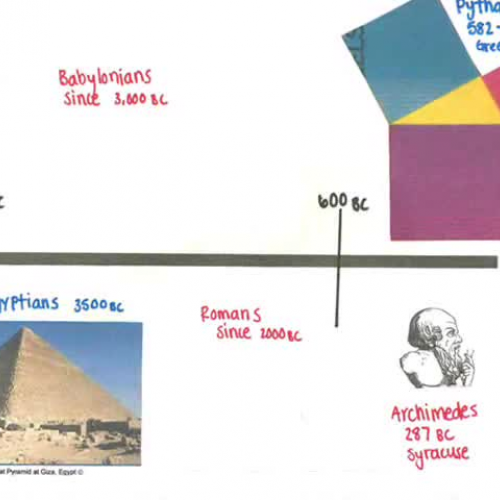 Pytha
582-
Gree
Babylonians
since 3,000 BC
600 BC
yptians 3500 BC
Romans
since 2000 BC
Archimedes
287 BC
Syracuse
at Pyramid at Giza, Egypt ©